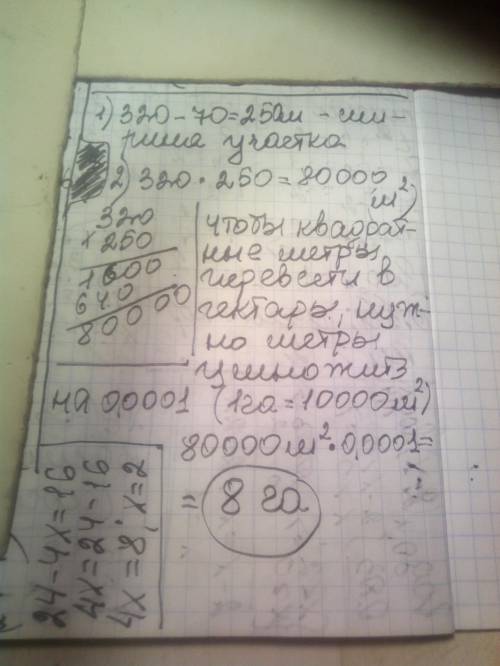 1) 320-70=250м - ши-
рина участка
2) 320 · 250 = 80000
(м²)
320
× 250
1600
640
80000
чтобы квадрат-
ные метры
перевести в
гектары, нуж-
но метры
умножить
на 0,0001 (1га = 10000м²)
80000м² · 0,0001=
= 8 га
24-4x=16
4x=24-16
4x=8; x=2